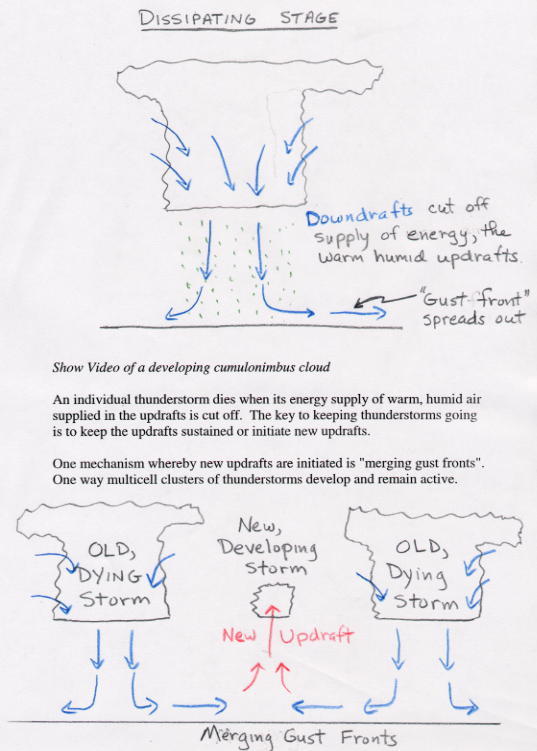 DISSIPATING STAGE
Downdrafts cut off
supply of energy, the
warm humid updrafts.
"Gust front"
spreads out
Show Video of a developing cumulonimbus cloud
An individual thunderstorm dies when its energy supply of warm, humid air
supplied in the updrafts is cut off. The key to keeping thunderstorms going
is to keep the updrafts sustained or initiate new updrafts.
One mechanism whereby new updrafts are initiated is "merging gust fronts".
One way multicell clusters of thunderstorms develop and remain active.
OLD,
DYING
Storm
New,
Developing
Storm
OLD,
Dying
Storm
New Updraft
Merging Gust Fronts